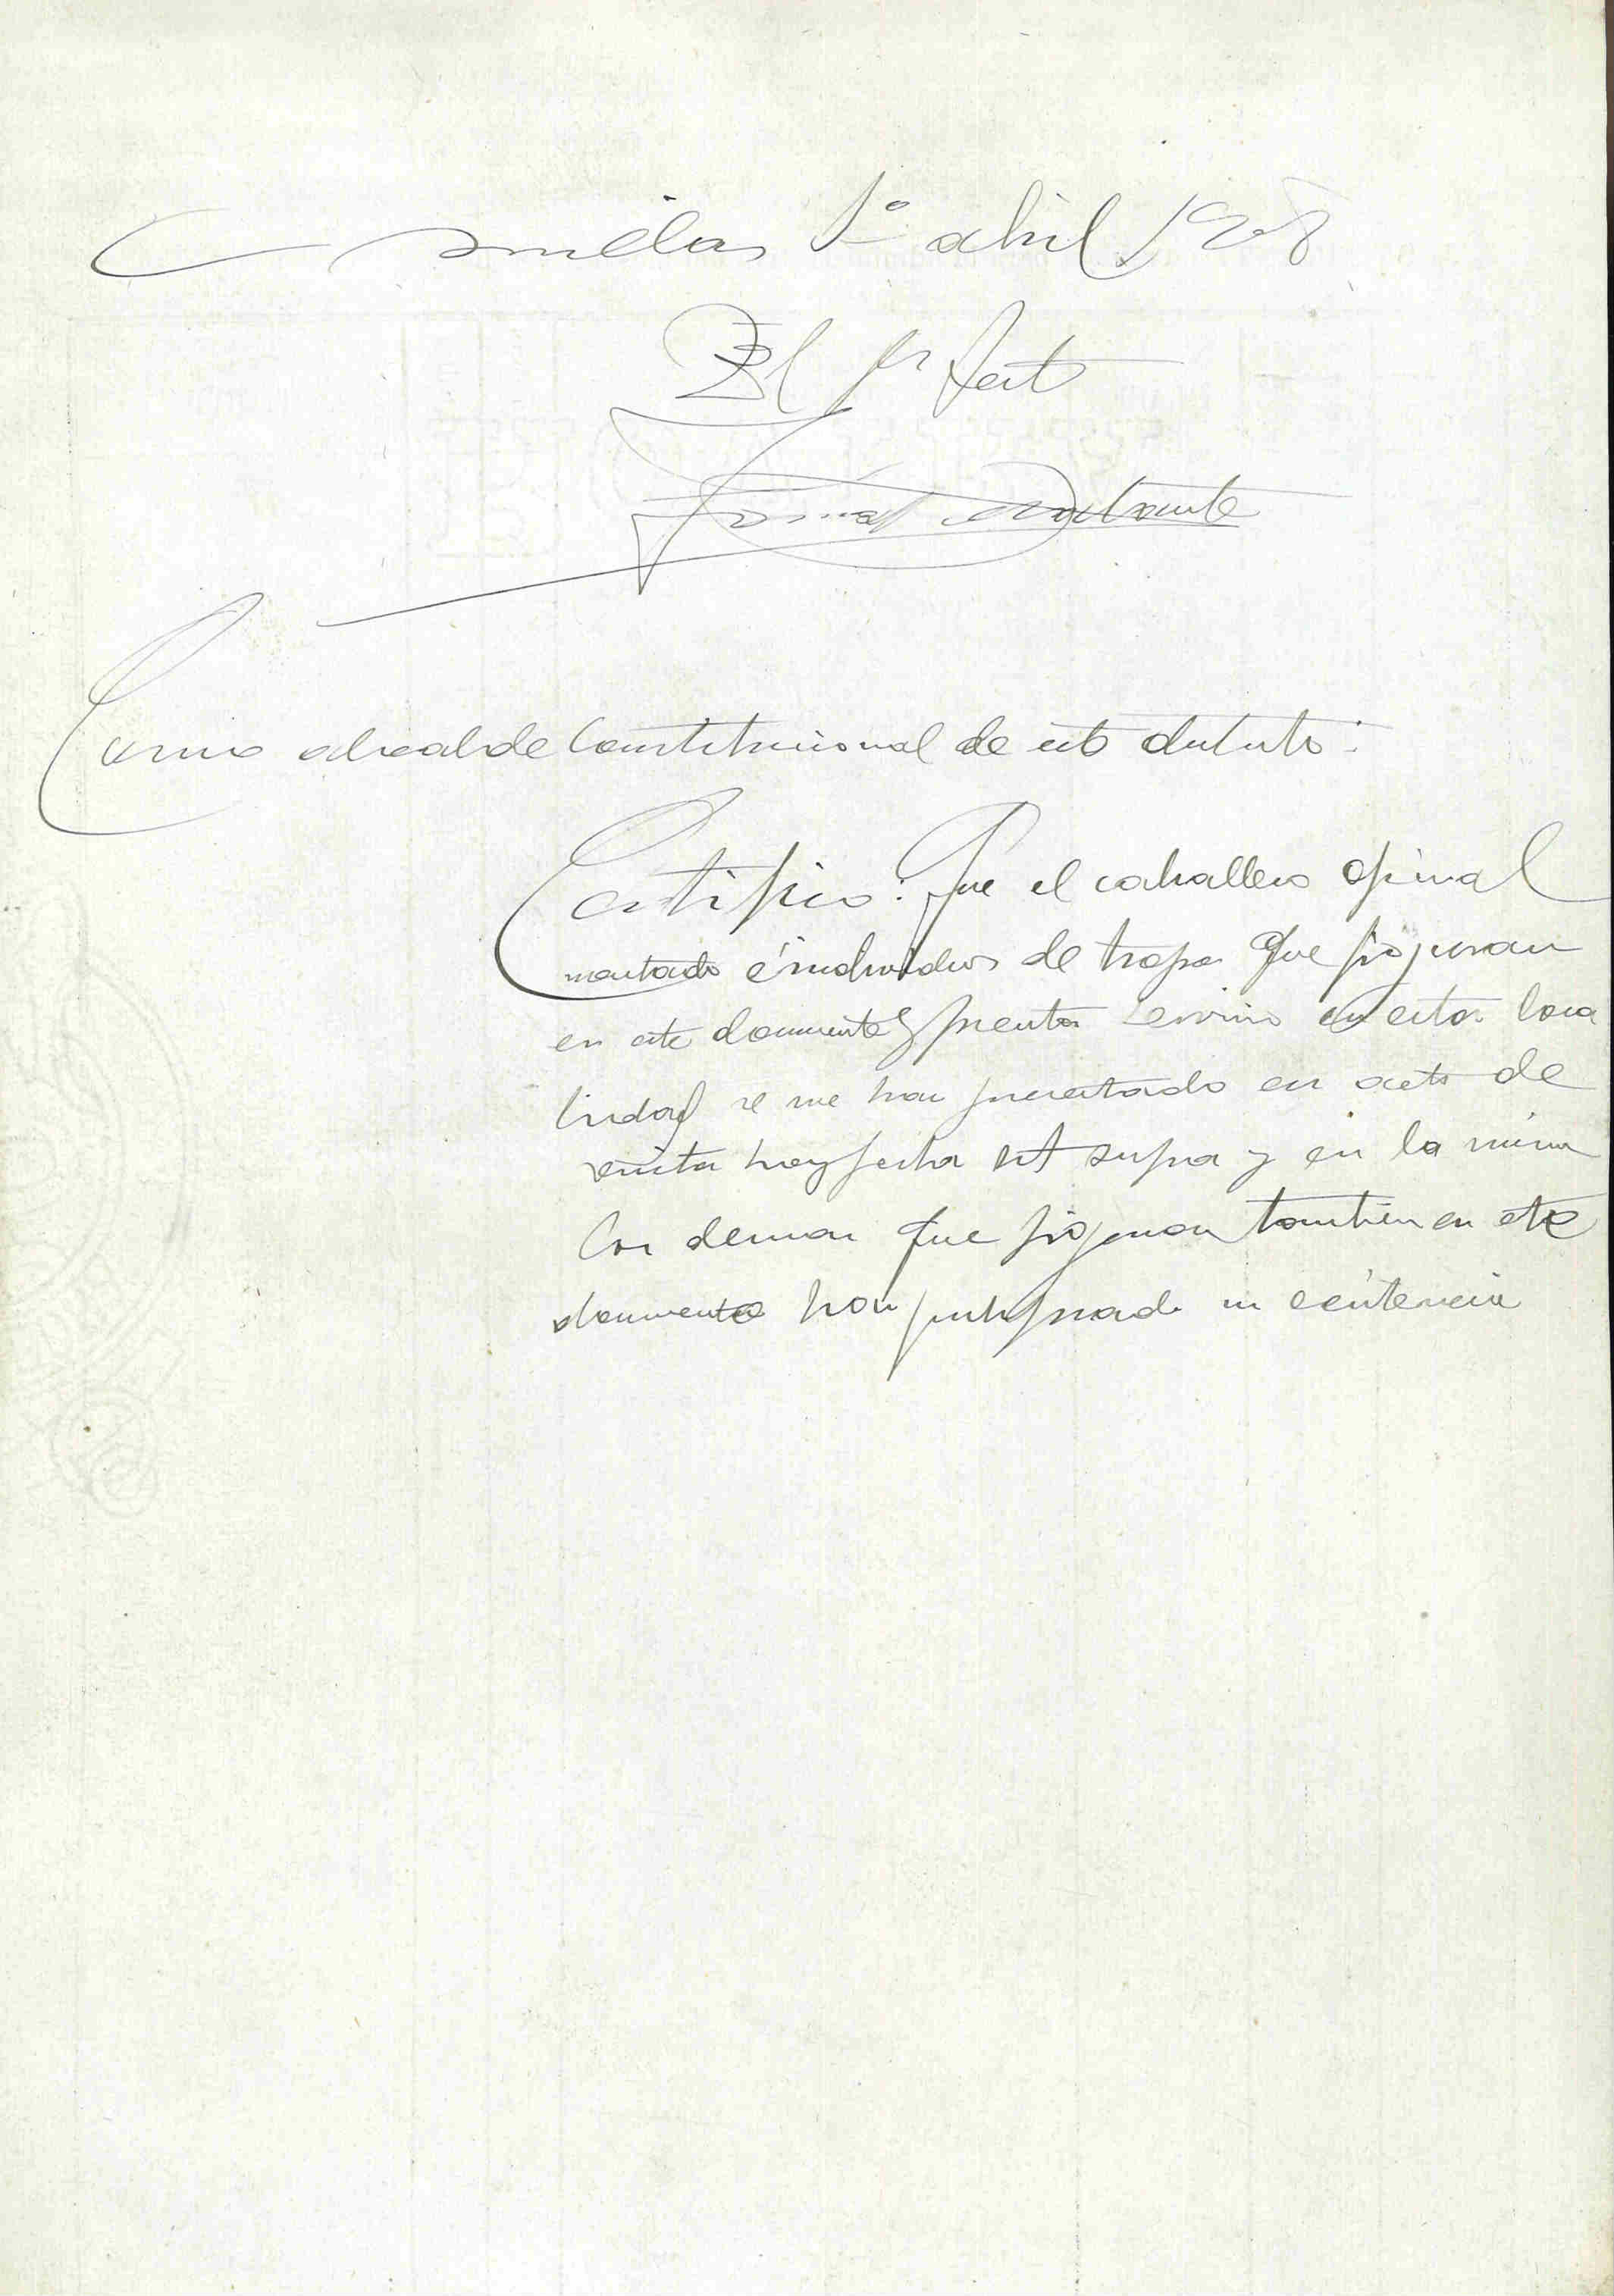 Comillas 1º abril 1908
El 1er Tent
Como alcalde Constitucional de este distrito:
Certifico: Que el caballero oficial
montado é individuos de tropa que figuran
en este documento y prestan servicio en esta loca
lidad se me han presentado en acto de
revista hoy fecha ut supra y en la misma
los demas que figuran tambien en este
documento han justificado su existencia